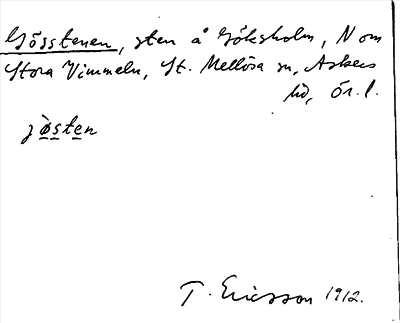 Gösstenen, sten å Göksholm, N om
Stora Vimmeln, St. Mellösa sn, Askers
hd, Ör. l.
jö̀sten
T. Ericsson 1912.